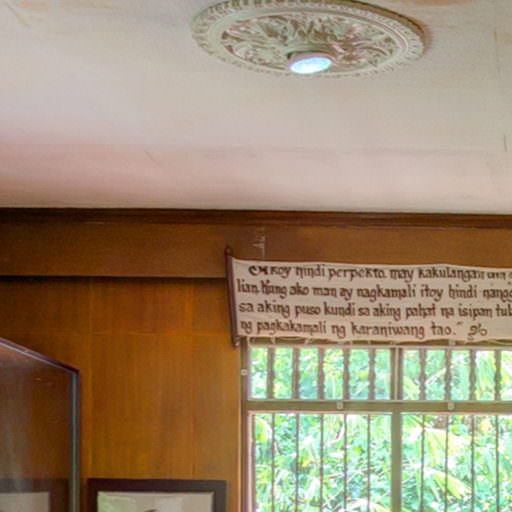 Akoy hindi perpekto. may kakulangan
lian. kung ako man ay nagkamali itoy hindi
sa aking puso kundi sa aking pahat na isipan
ng pagkakamali ng karaniwang tao."